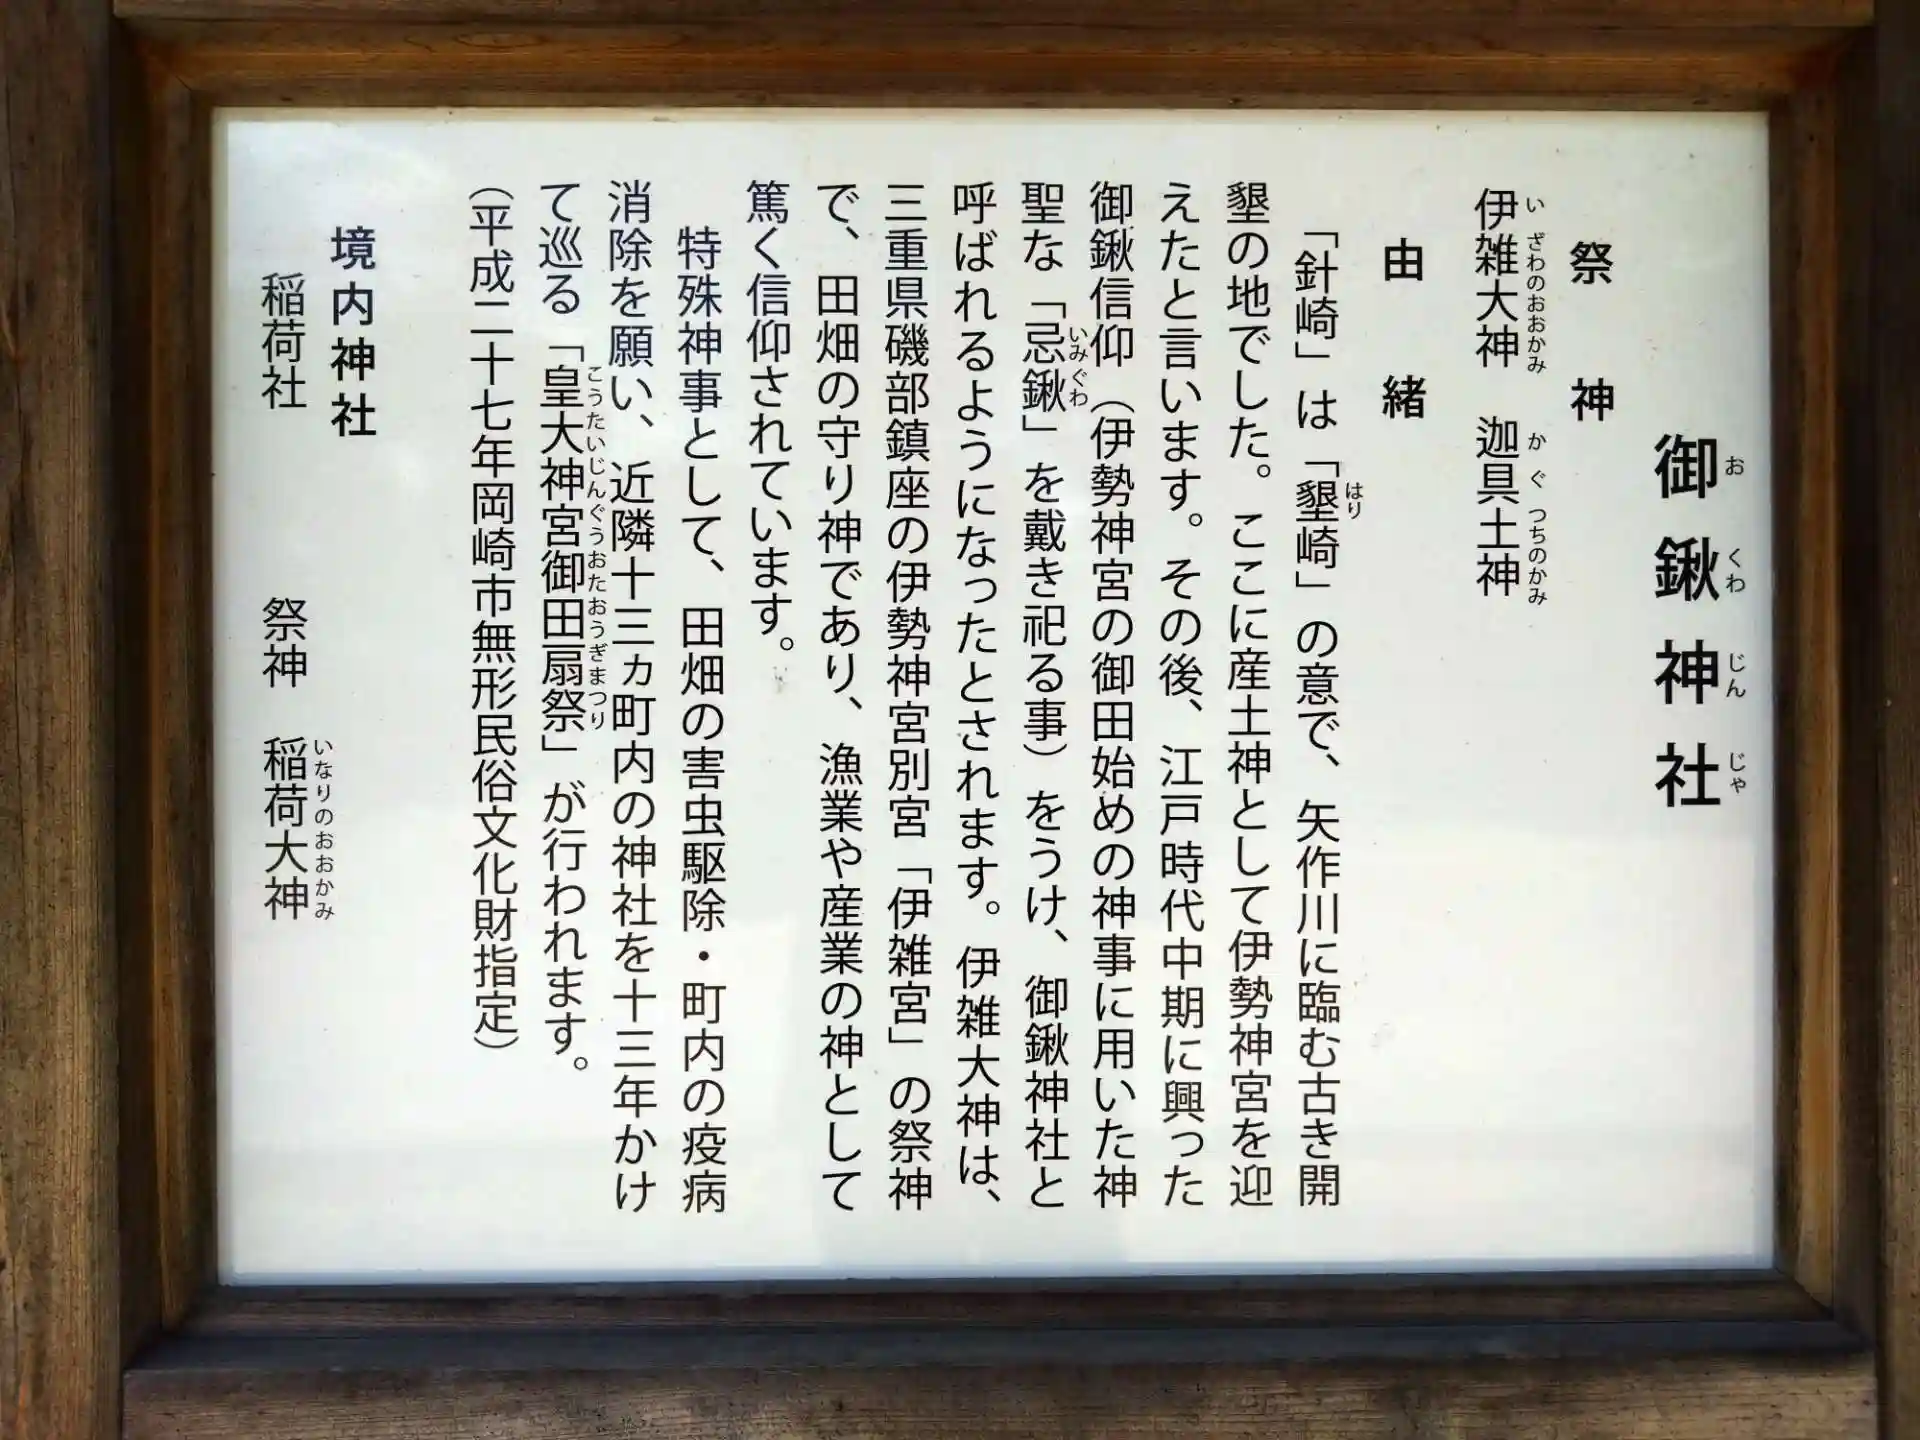 御鍬神社
おくわじんじゃ
祭神
伊雑大神　迦具土神
いざわのおおかみ　かぐつちのかみ
由緒
「針崎」は「墾崎」の意で、矢作川に臨む古き開
はり
墾の地でした。ここに産土神として伊勢神宮を迎
えたと言います。その後、江戸時代中期に興った
御鍬信仰（伊勢神宮の御田始めの神事に用いた神
聖な「忌鍬」を戴き祀る事）をうけ、御鍬神社と
いみぐわ
呼ばれるようになったとされます。伊雑大神は、
三重県磯部鎮座の伊勢神宮別宮「伊雑宮」の祭神
で、田畑の守り神であり、漁業や産業の神として
篤く信仰されています。
特殊神事として、田畑の害虫駆除・町内の疫病
消除を願い、近隣十三ヵ町内の神社を十三年かけ
て巡る「皇大神宮御田扇祭」が行われます。
こうたいじんぐうおたおうぎまつり
（平成二十七年岡崎市無形民俗文化財指定）
境内神社
稲荷社　祭神　稲荷大神
いなりのおおかみ